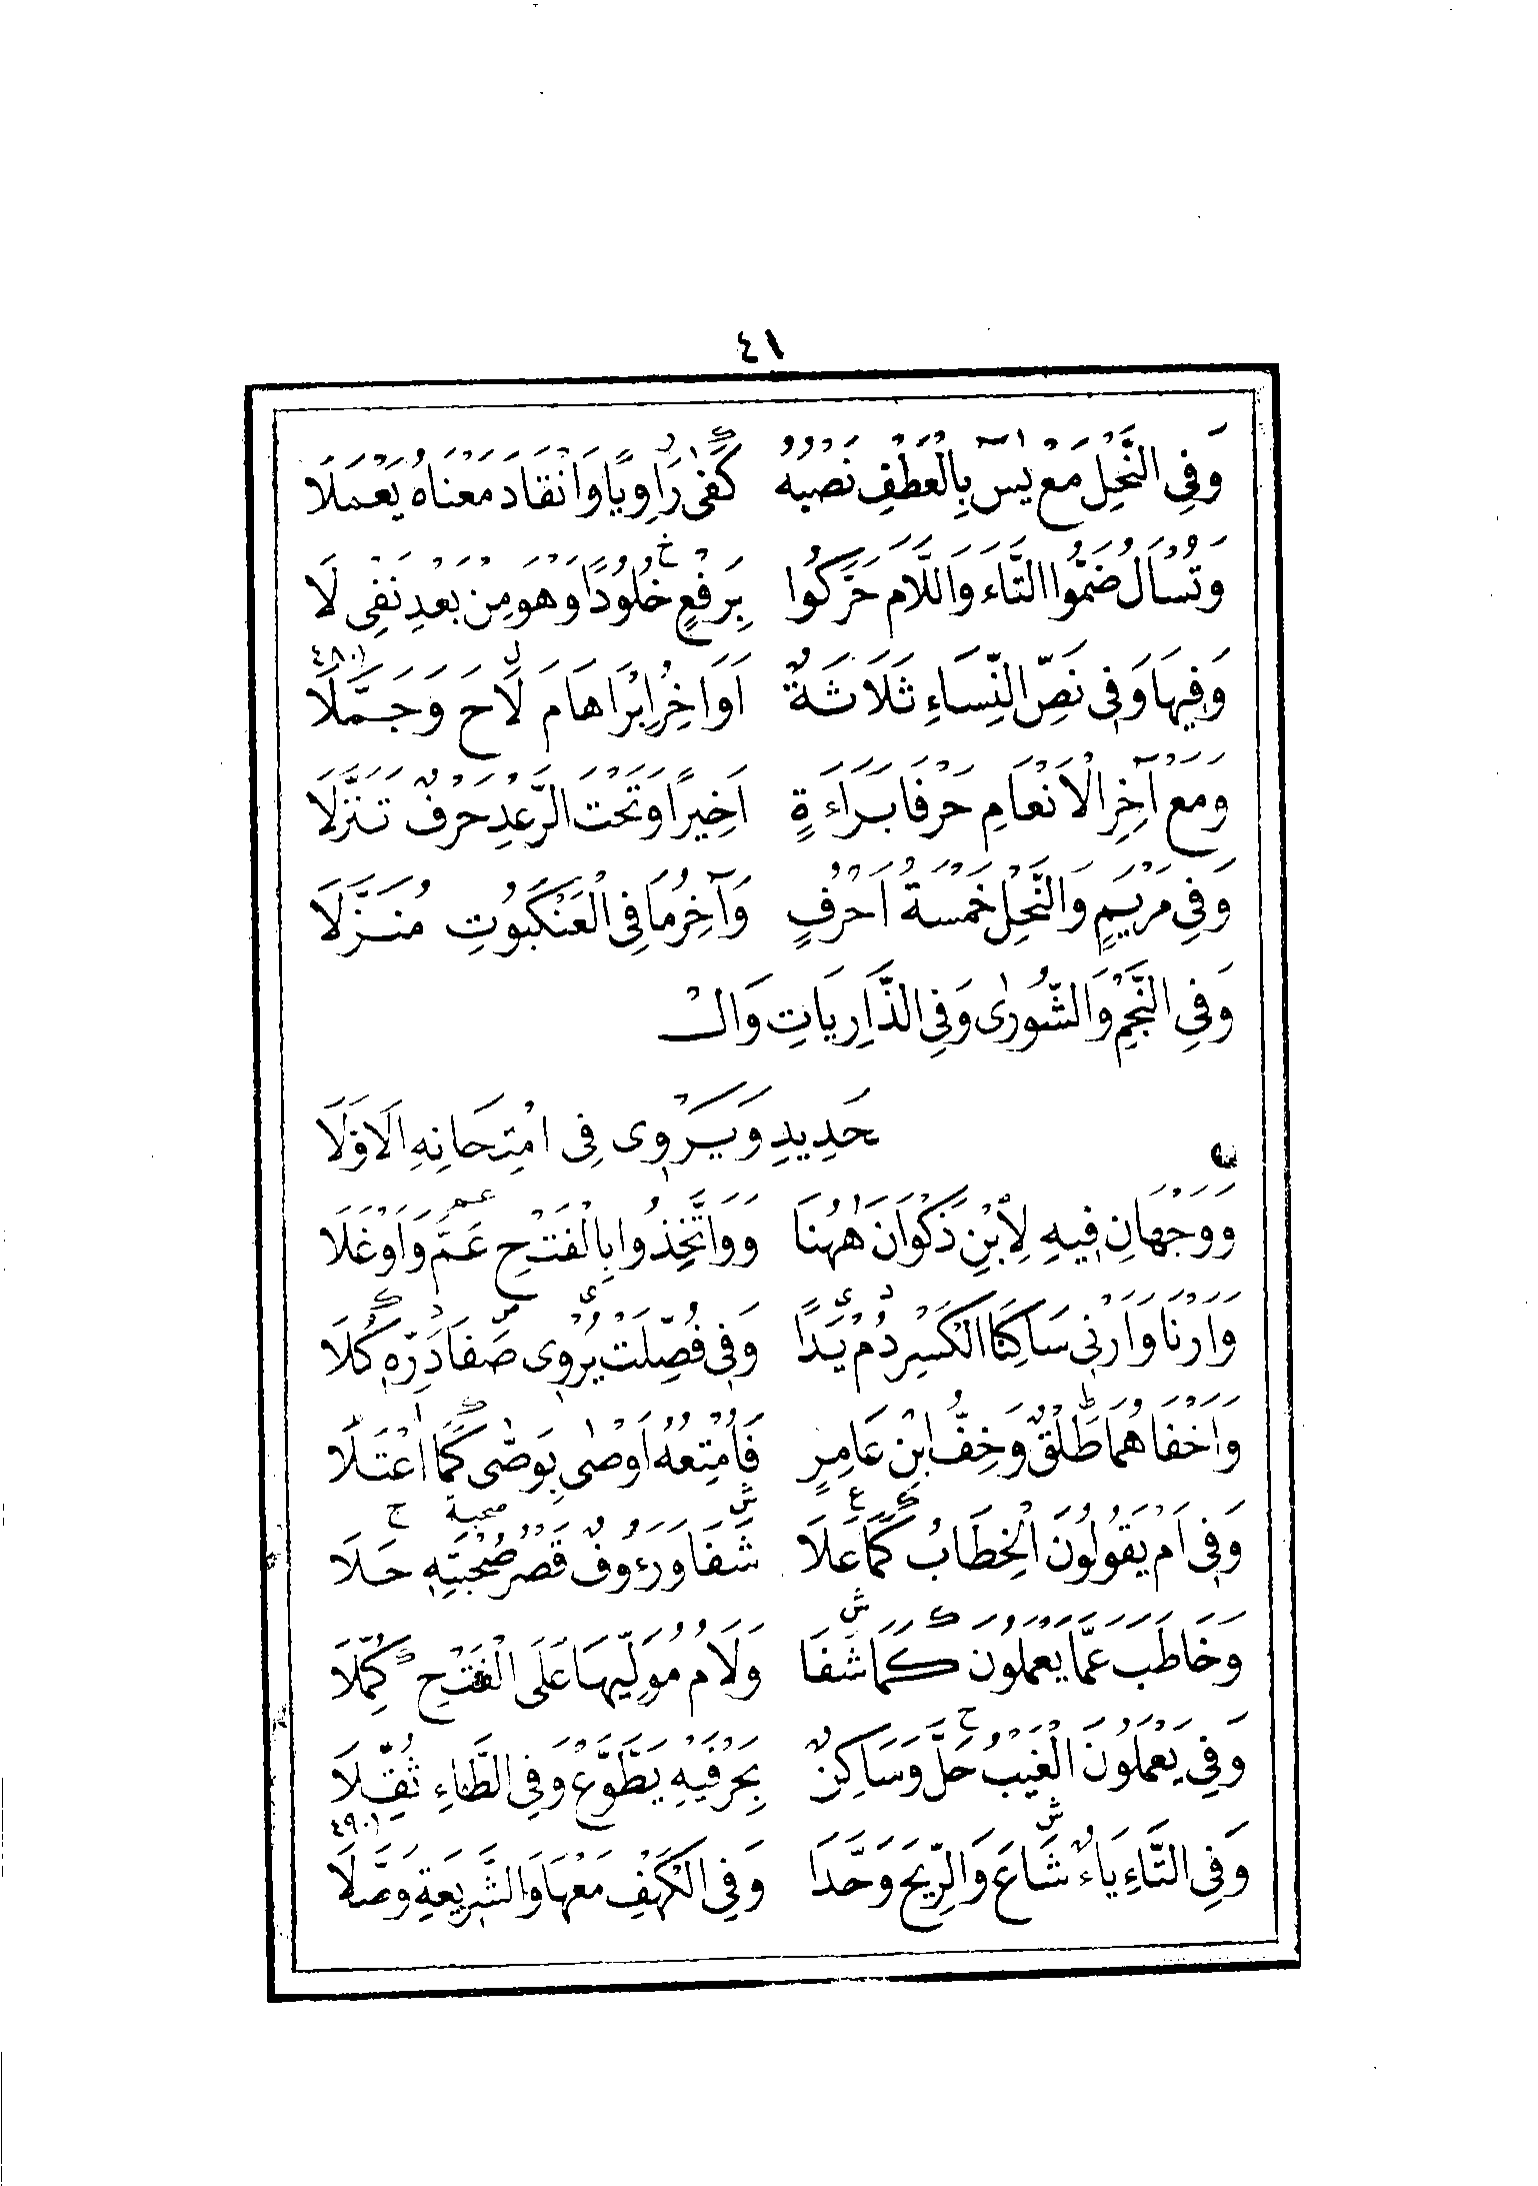 ٤١
وَفِي النَّحْلِ مَعْ يٰسٓ بِالْعَطْفِ نَصْبُهُ كَفٰى رَاوِيًا وَانْقَادَ مَعْنَاهُ يَعْمَلَا
وَتُسْأَلُ ضَمُّوا التَّاءَ وَاللَّامَ حَرَّكُوا بِرَفْعٍ خُلُودًا وَهْوَ مِنْ بَعْدِ نَفْىِ لَا
٤٨٠١
وَفِيهَا وَفِي نَصِّ النِّسَاءِ ثَلَاثَةٌ اَوَاخِرُ اِبْرَاهَامَ لَاحَ وَجَمَّلَا
وَمَعْ آخِرِ الْاَنْعَامِ حَرْفَا بَرَاءَةٍ اَخِيرًا وَتَحْتَ الرَّعْدِ حَرْفٌ تَنَزَّلَا
وَفِي مَرْيَمٍ وَالنَّحْلِ خَمْسَةُ اَحْرُفٍ وَآخِرُ مَا فِي الْعَنْكَبُوتِ مُنَزَّلَا
وَفِي النَّجْمِ وَالشُّورٰى وَفِي الذَّارِيَاتِ وَالْ
حَدِيدِ وَيَرْوِى فِي امْتِحَانِهِ الْاَوَّلَا
وَوَجْهَانِ فِيهِ لِابْنِ ذَكْوَانَ هٰهُنَا وَوَاتَّخَذُوا بِالْفَتْحِ عَمَّ وَاَوْغَلَا
وَاَرْنَا وَاَرْنِي سَاكِنَا الْكَسْرِ دُمْ يَدًا وَفِي فُصِّلَتْ يُرْوِى صَفَا دَرِّهِ كُلَا
وَاَخْفَاهُمَا طَلْقٌ وَخِفُّ ابْنِ عَامِرٍ فَاُمْتِعُهُ اَوْصٰى بِوَصّٰى كَمَا اعْتَلَا
وَفِي اَمْ يَقُولُونَ الْخِطَابُ كَمَا عَلَا شَفَا وَرَءُوفٌ قَصْرُ صُحْبَتِهِ حَلَا
وَخَاطَبَ عَمَّا يَعْمَلُونَ كَمَا شَفَا وَلَامُ مُوَلِّيهَا عَلَى الْفَتْحِ كُمِّلَا
وَفِي يَعْمَلُونَ الْغَيْبُ حَلَّ وَسَاكِنٌ بِحَرْفَيْهِ يَطَّوَّعْ وَفِي الطَّاءِ ثُقِّلَا
٤٩٠١
وَفِي التَّاءِ يَاءٌ شَاعَ وَالرِّيحَ وَحَّدَا وَفِي الْكَهْفِ مَعْهَا وَالشَّرِيعَةِ وَصَّلَا